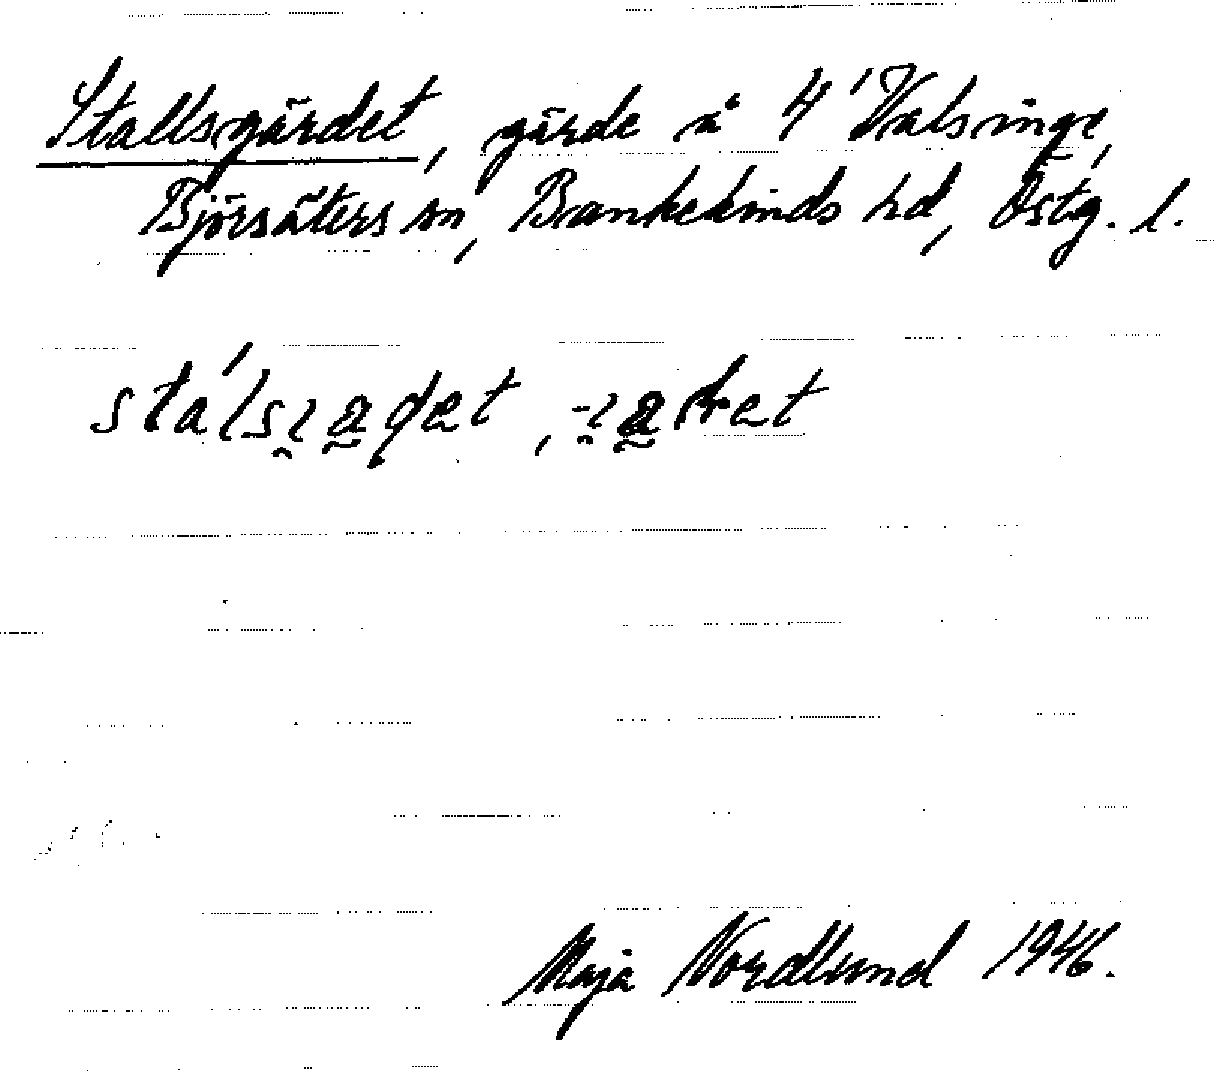 Stallsgärdet, gärde å 4' Valsinge,
Björsäters sn, Bankekinds hd, Östg. l.
Maja Nordlund 1946.